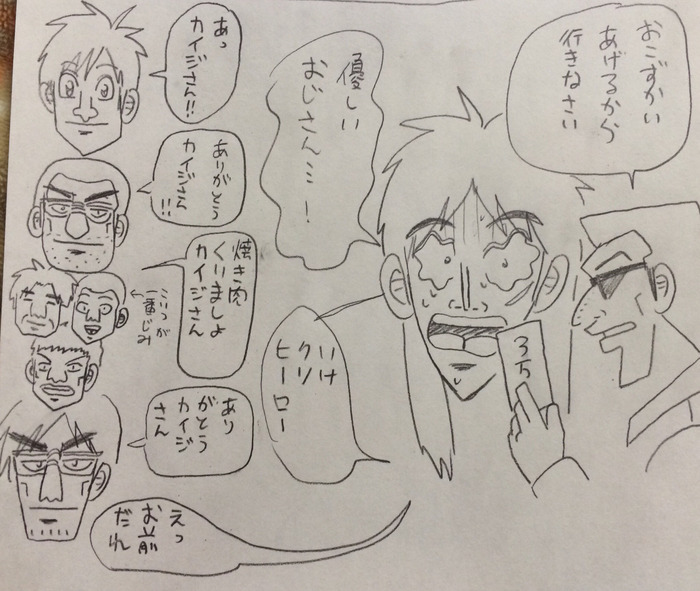 おこずかい
あげるから
行きなさい
優しい
おじさん…！
3万
いけ
クソ
ヒーロー
あっ
カイジさん!!
ありがとう
カイジさん!!
焼き肉
くいましょ
カイジさん
こいつが
一番じみ
あり
がとう
カイジ
さん
えっ
お前
だれ